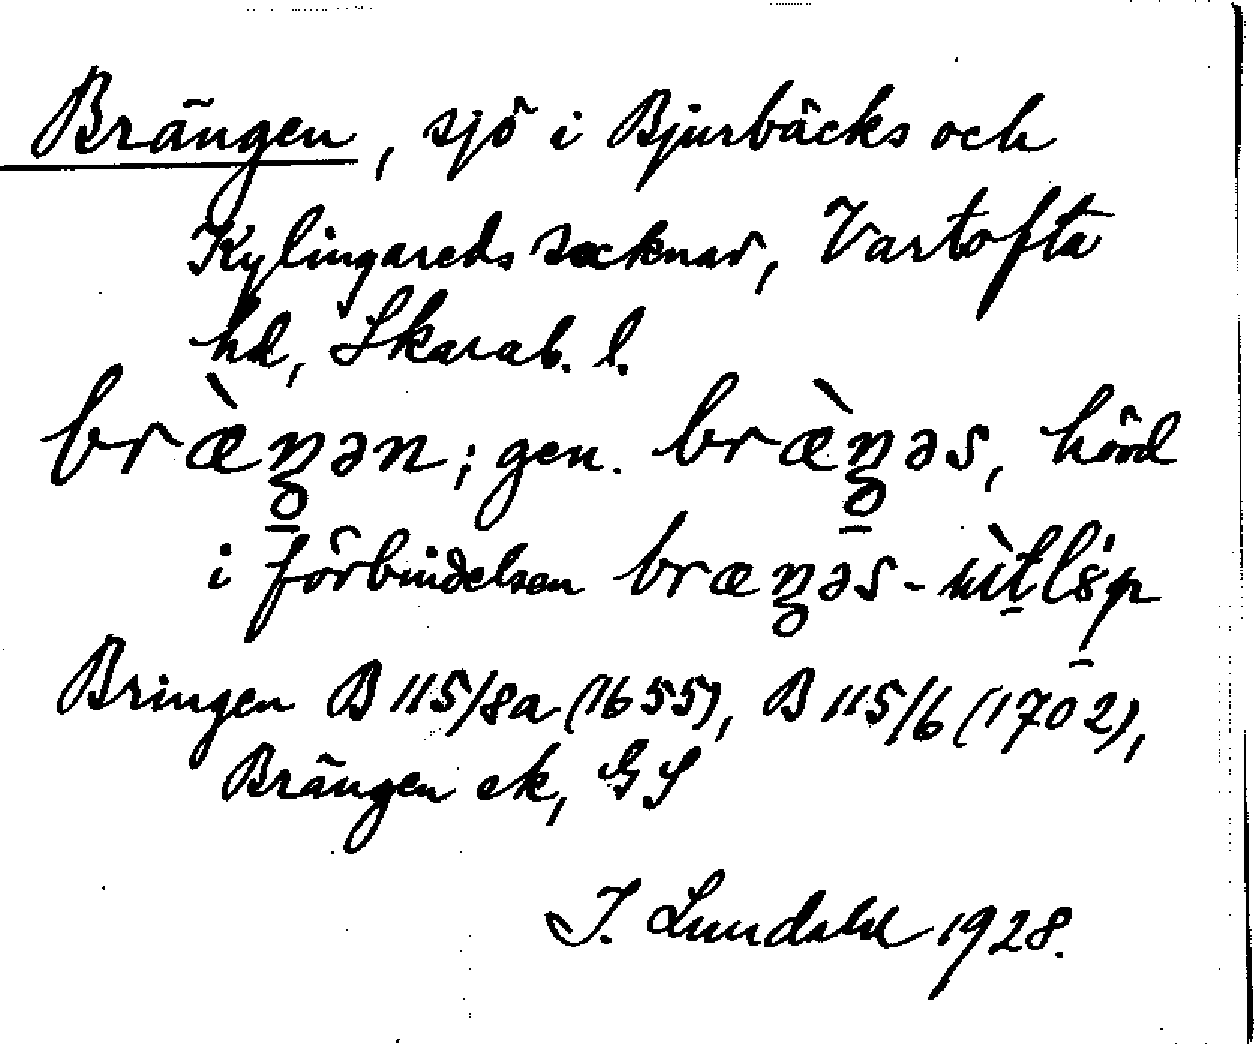 Brängen, sjö i Bjurbäcks och
Kylingareds socknar, Vartofta
hd, Skarab. l.
bræ̀ŋən; gen. bræ̀ŋəs, hörd
i förbindelsen bræŋəs-
Bringen B 115/8a (1655), B 115/6 (1702),
Brängen ek, GS
I. Lundahl 1928.